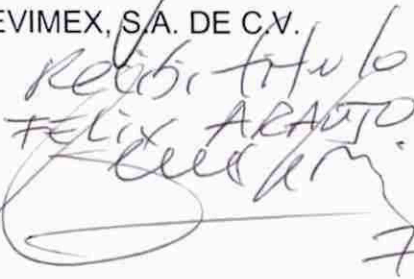 EVIMEX, S.A. DE C.V.
Recibi titulo
FELIX ARAUJO
7